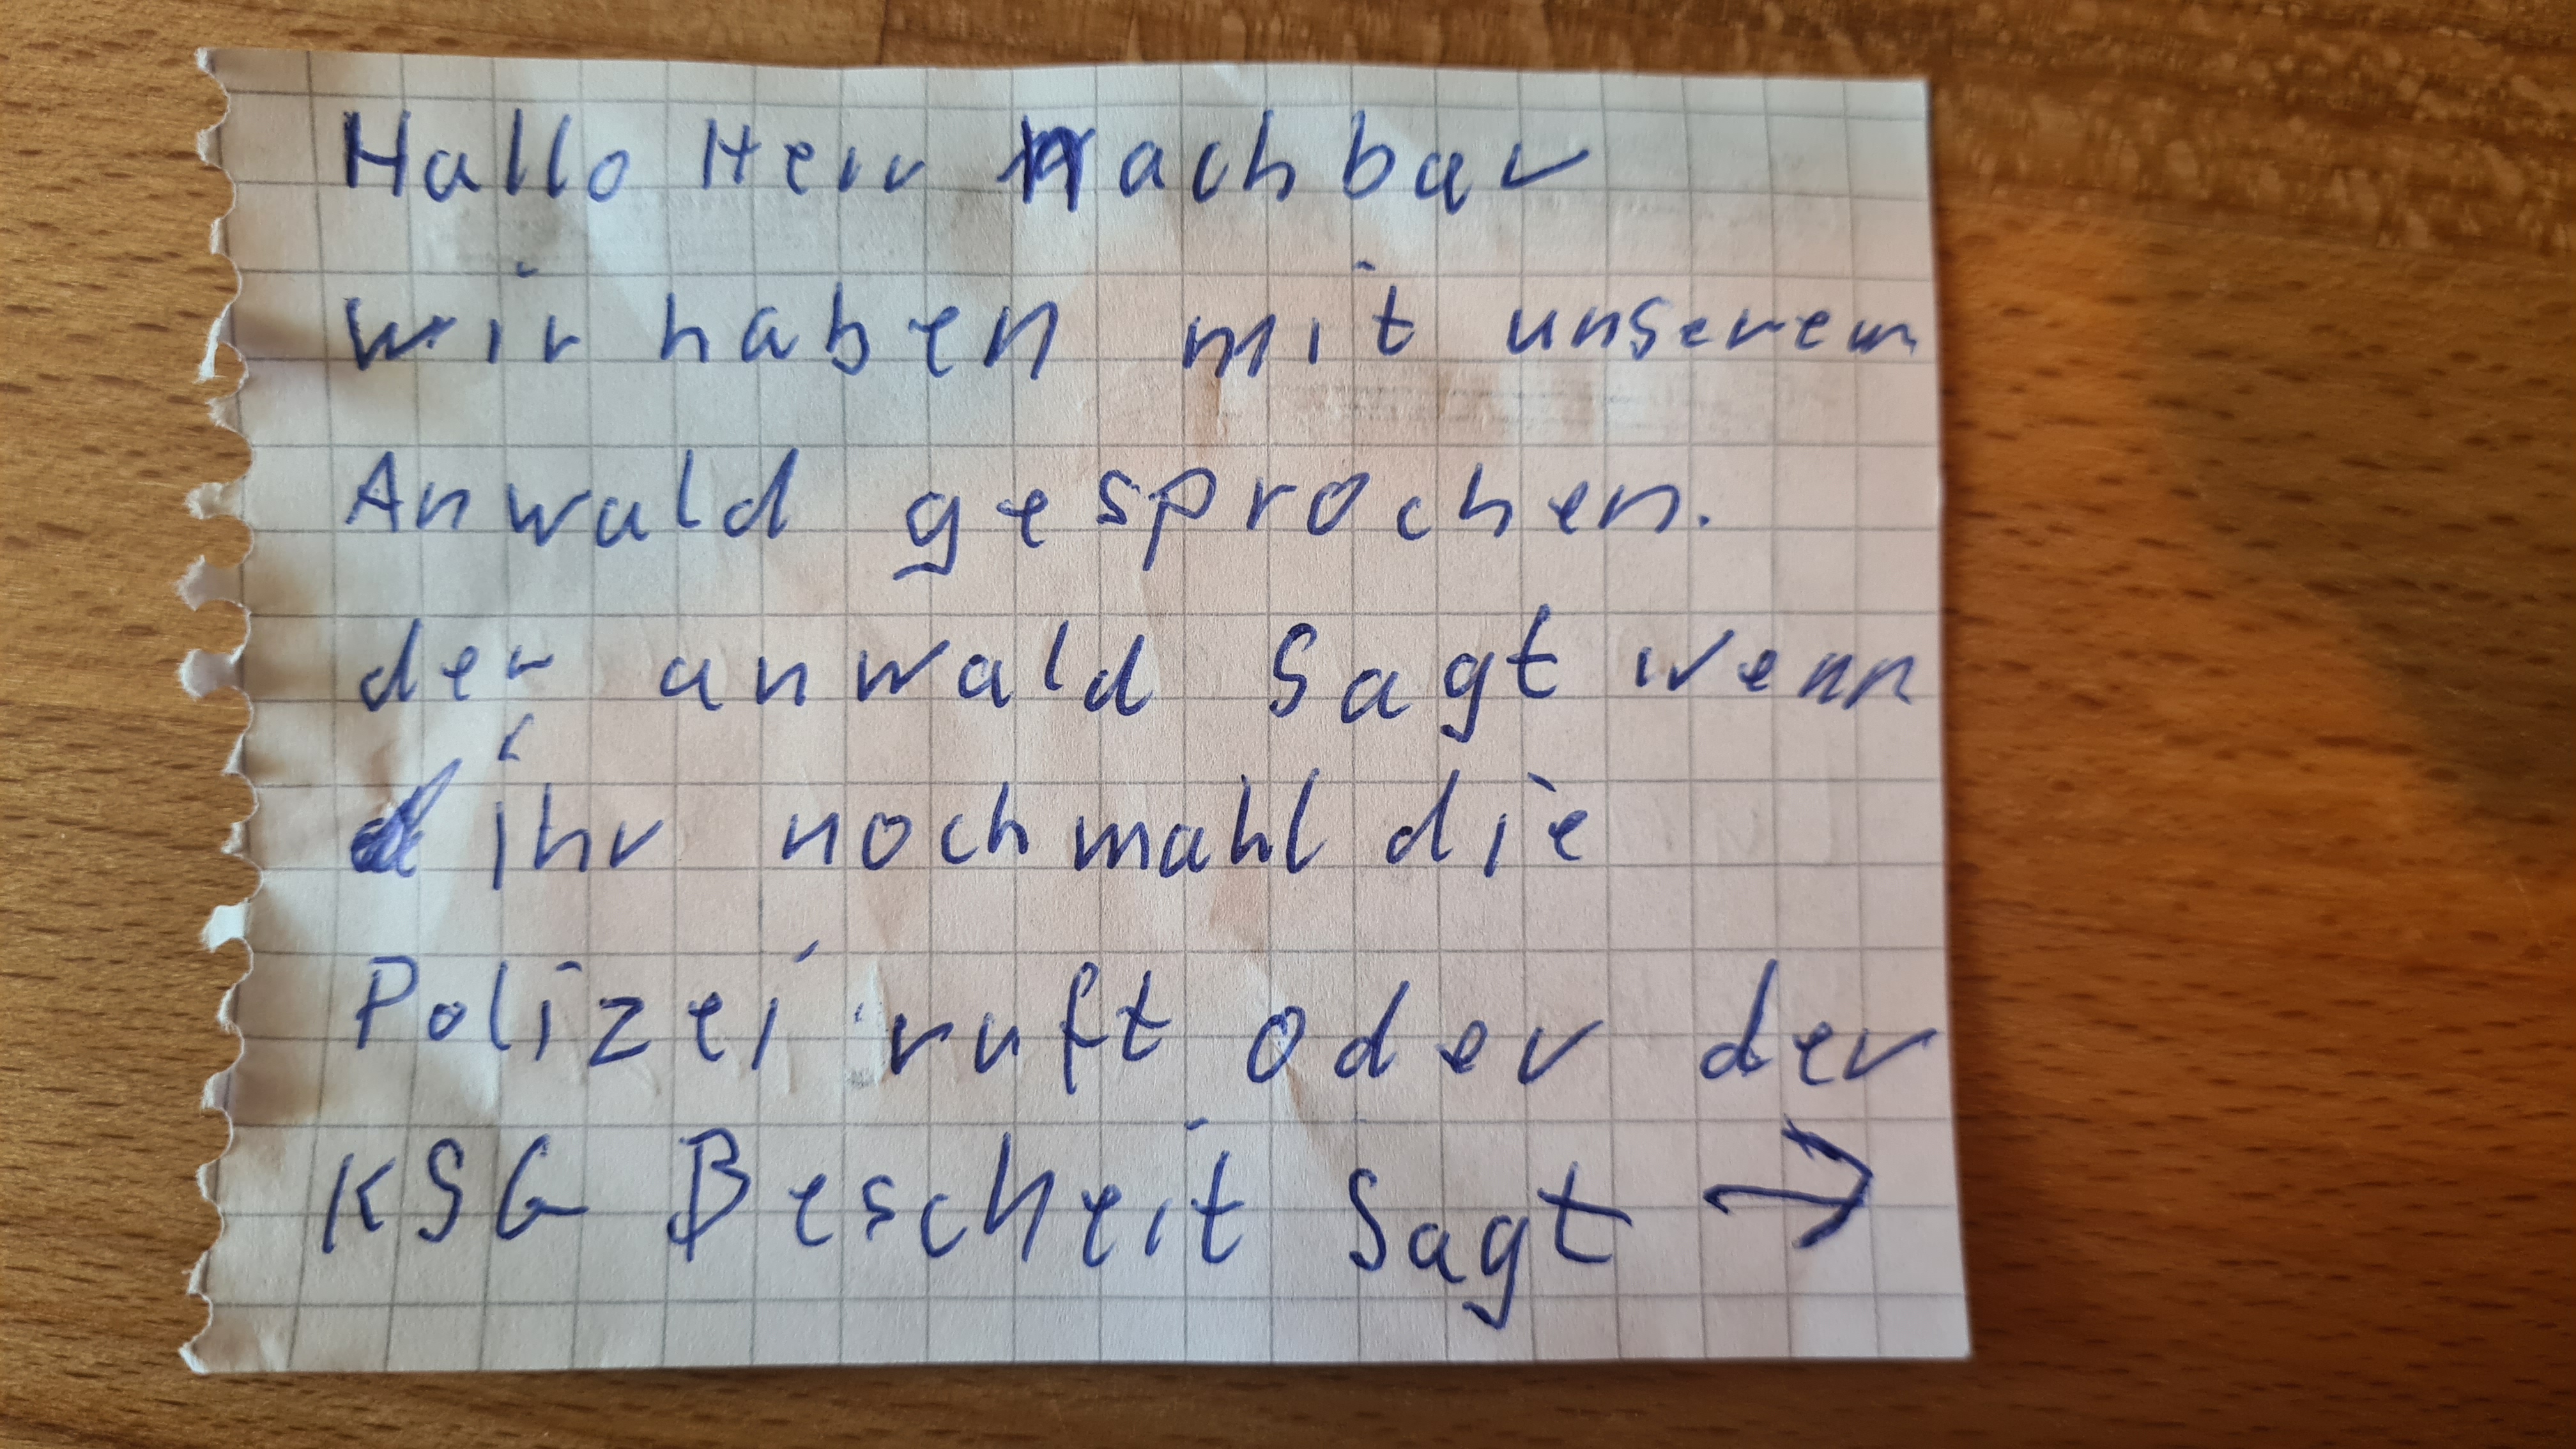 Hallo Herr Nachbar
wir haben mit unserem
Anwald gesprochen.
der anwald sagt wenn
ihr nochmahl die
Polizei ruft oder der
KSG Bescheit sagt →